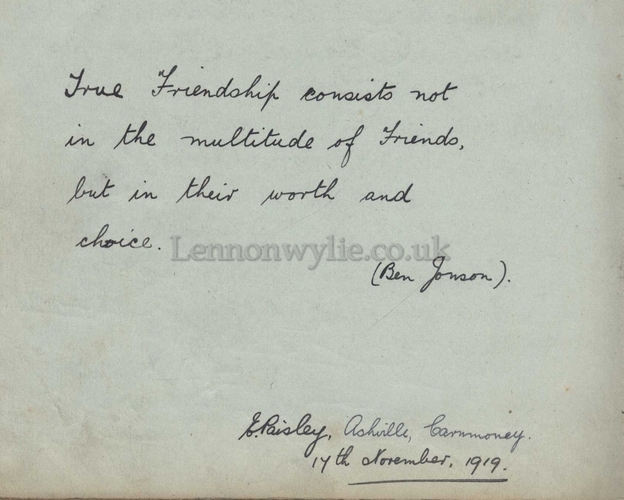 True Friendship consists not
in the multitude of Friends,
but in their worth and
choice.
Lennonwylie.co.uk
(Ben Jonson).
E. Paisley, Ashville, Carnmoney.
17th November, 1919.